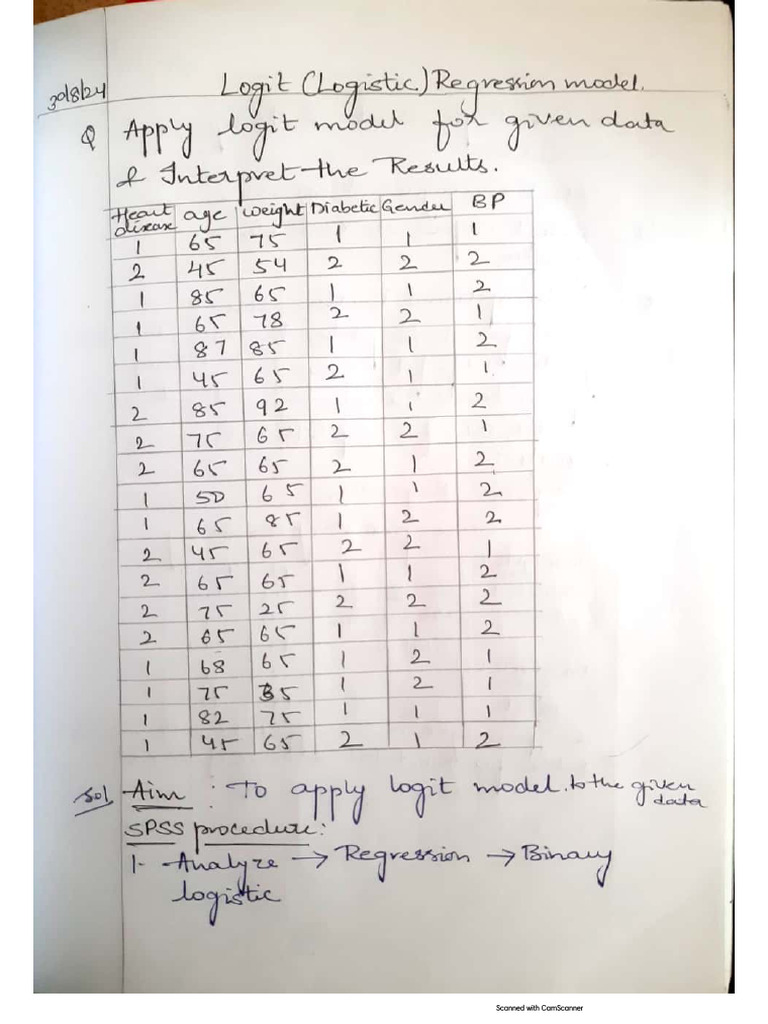 30/8/24 Logit (Logistic) Regression model.
Q Apply logit model for given data
& Interpret the Results.
Heart disease age weight Diabetic Gender BP
1 65 75 1 1 1
2 45 54 2 2 2
1 85 65 1 1 2
1 65 78 2 2 1
1 87 85 1 1 2
1 45 65 2 1 1
2 85 92 1 1 2
2 75 65 2 2 1
2 65 65 2 1 2
1 50 65 1 1 2
1 65 85 1 2 2
2 45 65 2 2 1
2 65 65 1 1 2
2 75 25 2 2 2
2 65 65 1 1 2
1 68 65 1 2 1
1 75 35 1 2 1
1 82 75 1 1 1
1 45 65 2 1 2
Sol Aim : To apply logit model to the given data
SPSS procedure:
1- Analyze → Regression → Binary
logistic
Scanned with CamScanner